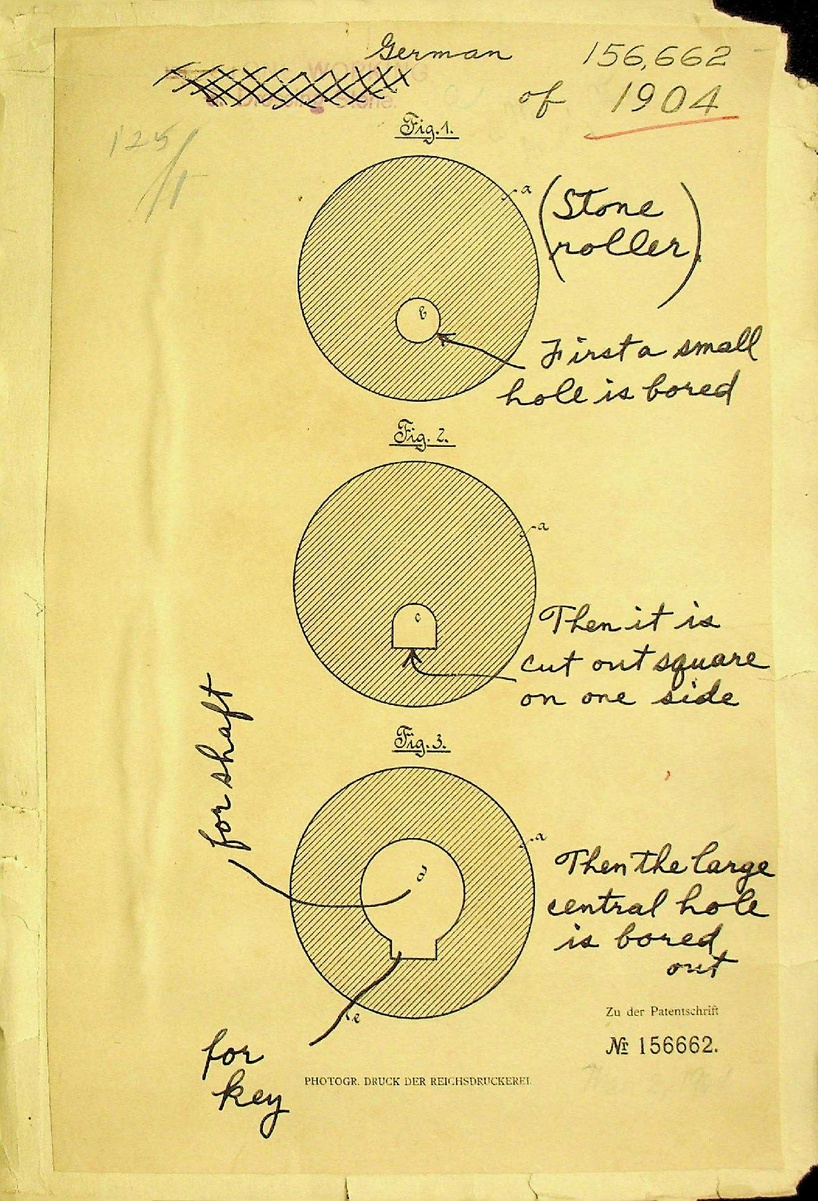 German 156,662
of 1904
125/1
Fig. 1.
a
(Stone
roller)
b
First a small
hole is bored
Fig. 2.
a
c
Then it is
cut out square
on one side
Fig. 3.
for shaft
a
d
Then the large
central hole
is bored
out
e
for
key
Zu der Patentschrift
№ 156662.
PHOTOGR. DRUCK DER REICHSDRUCKEREI.